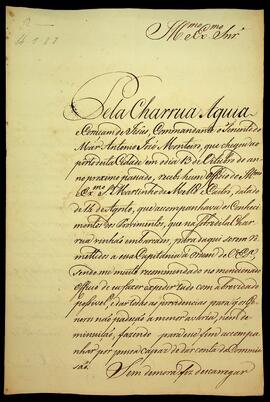 Illmo e Exmo Snr
Pela Charrua Aguia
e Coração de Jesus, Commandante o Tenente do
Mar Antonio José Monteiro, que chegou ao
porto desta Cidade em o dia 13 de Outubro do an-
no proximo passado, recebi hum Officio do Illmo
e Exmo Sr Martinho de Mello e Castro, datado
de 14 de Agosto, que acompanhava os Conheci-
mentos dos Provimentos, que na sobredita Char-
rua vinhão embarcados, para daqui serem re-
mettidos a essa Capitania á ordem de V. Exa,
sendo-me muito recommendado no mencionado
Officio de os fazer expedir tudo com a brevidade
possivel, e dar todas as providencias para que os ge-
neros não padeção a menor avaria, nem di-
minuição, fazendo para isso serem acompa-
nhar por pessoa capaz de dar conta da Commis-
são.
Sem demora fiz descarregar